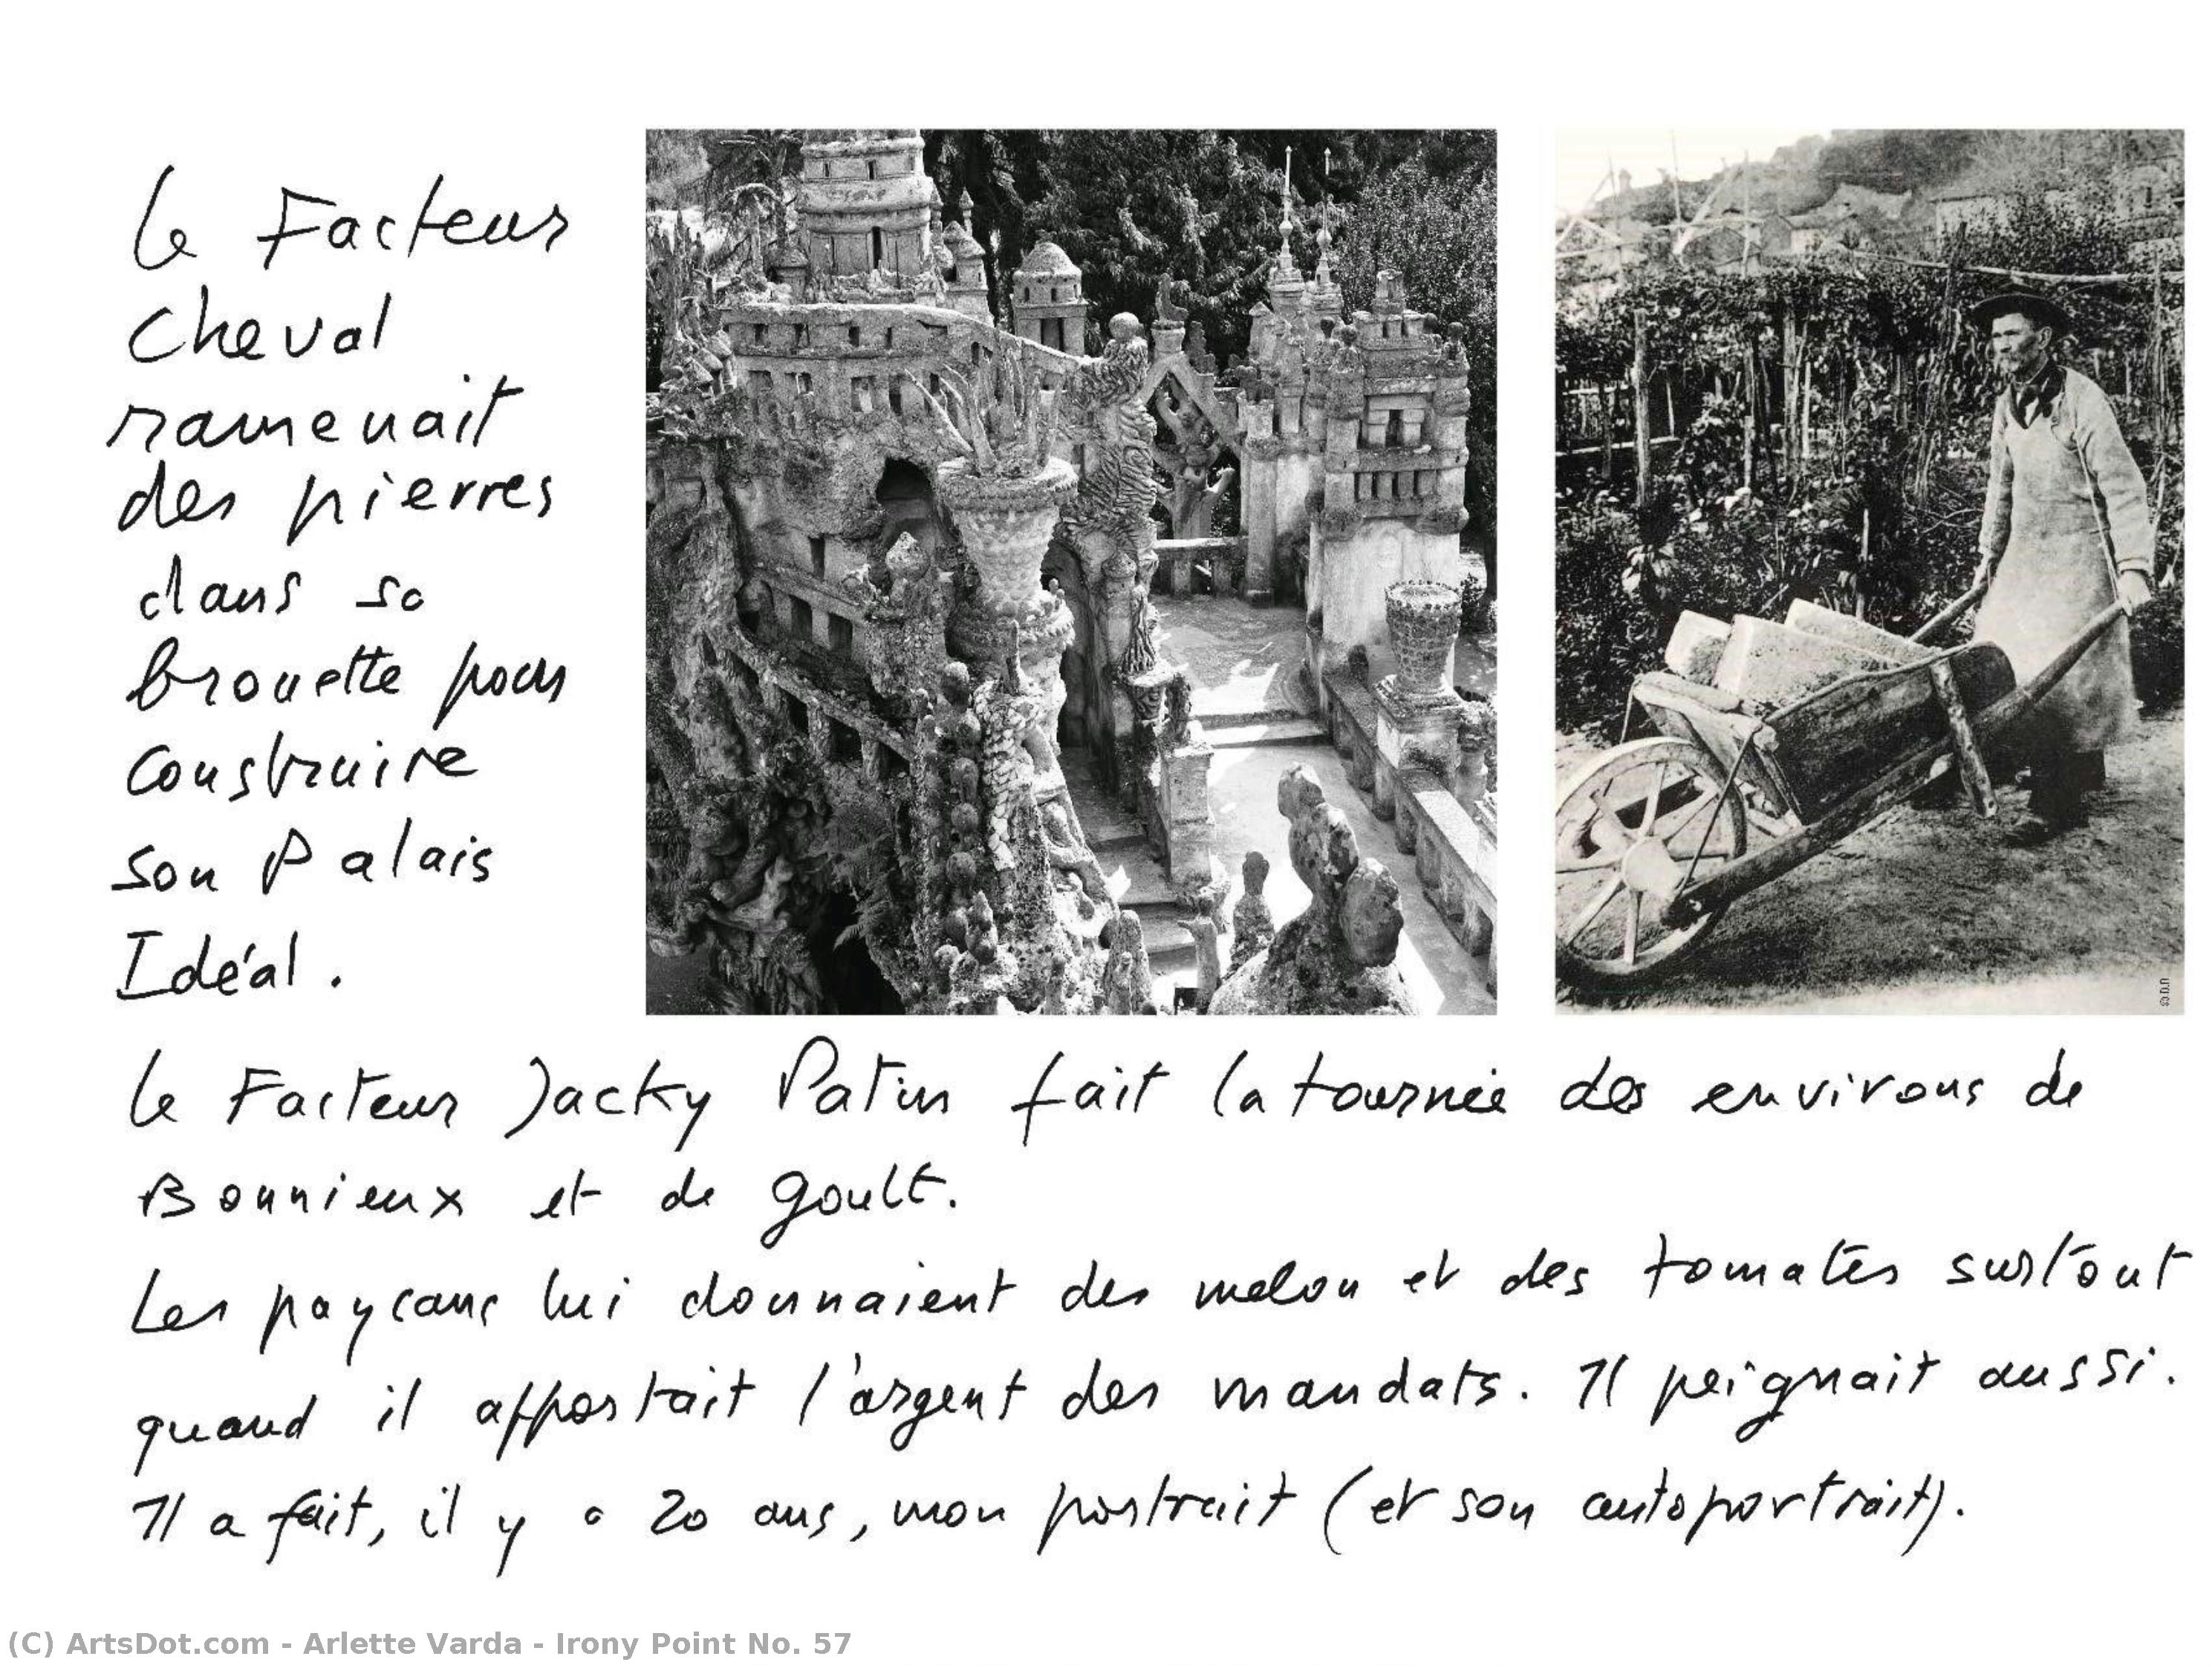 Le Facteur
Cheval
ramenait
des pierres
dans sa
brouette pour
construire
son Palais
Idéal.
Le Facteur Jacky Patin fait la tournée des environs de
Bonnieux et de Goult.
Les paysans lui donnaient des melon et des tomates surtout
quand il apportait l'argent des mandats. Il peignait aussi.
Il a fait, il y a 20 ans, mon portrait (et son autoportrait).
(C) ArtsDot.com - Arlette Varda - Irony Point No. 57